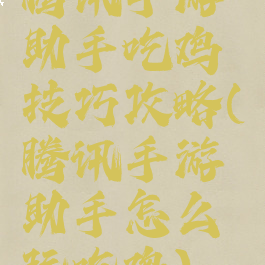 腾讯手游
助手吃鸡
技巧攻略(
腾讯手游
助手怎么
玩吃鸡)